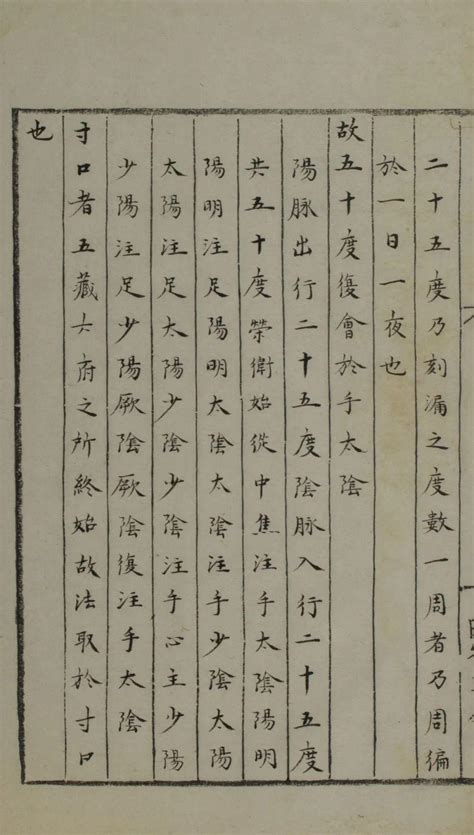 二十五度乃刻漏之度數一周者乃周徧
於一日一夜也
故五十度復會於手太陰
陽脉出行二十五度陰脉入行二十五度
共五十度榮衛始從中焦注手太陰陽明
陽明注足陽明太陰太陰注手少陰太陽
太陽注足太陽少陰少陰注手心主少陽
少陽注足少陽厥陰厥陰復注手太陰
寸口者五藏六府之所終始故法取於寸口
也